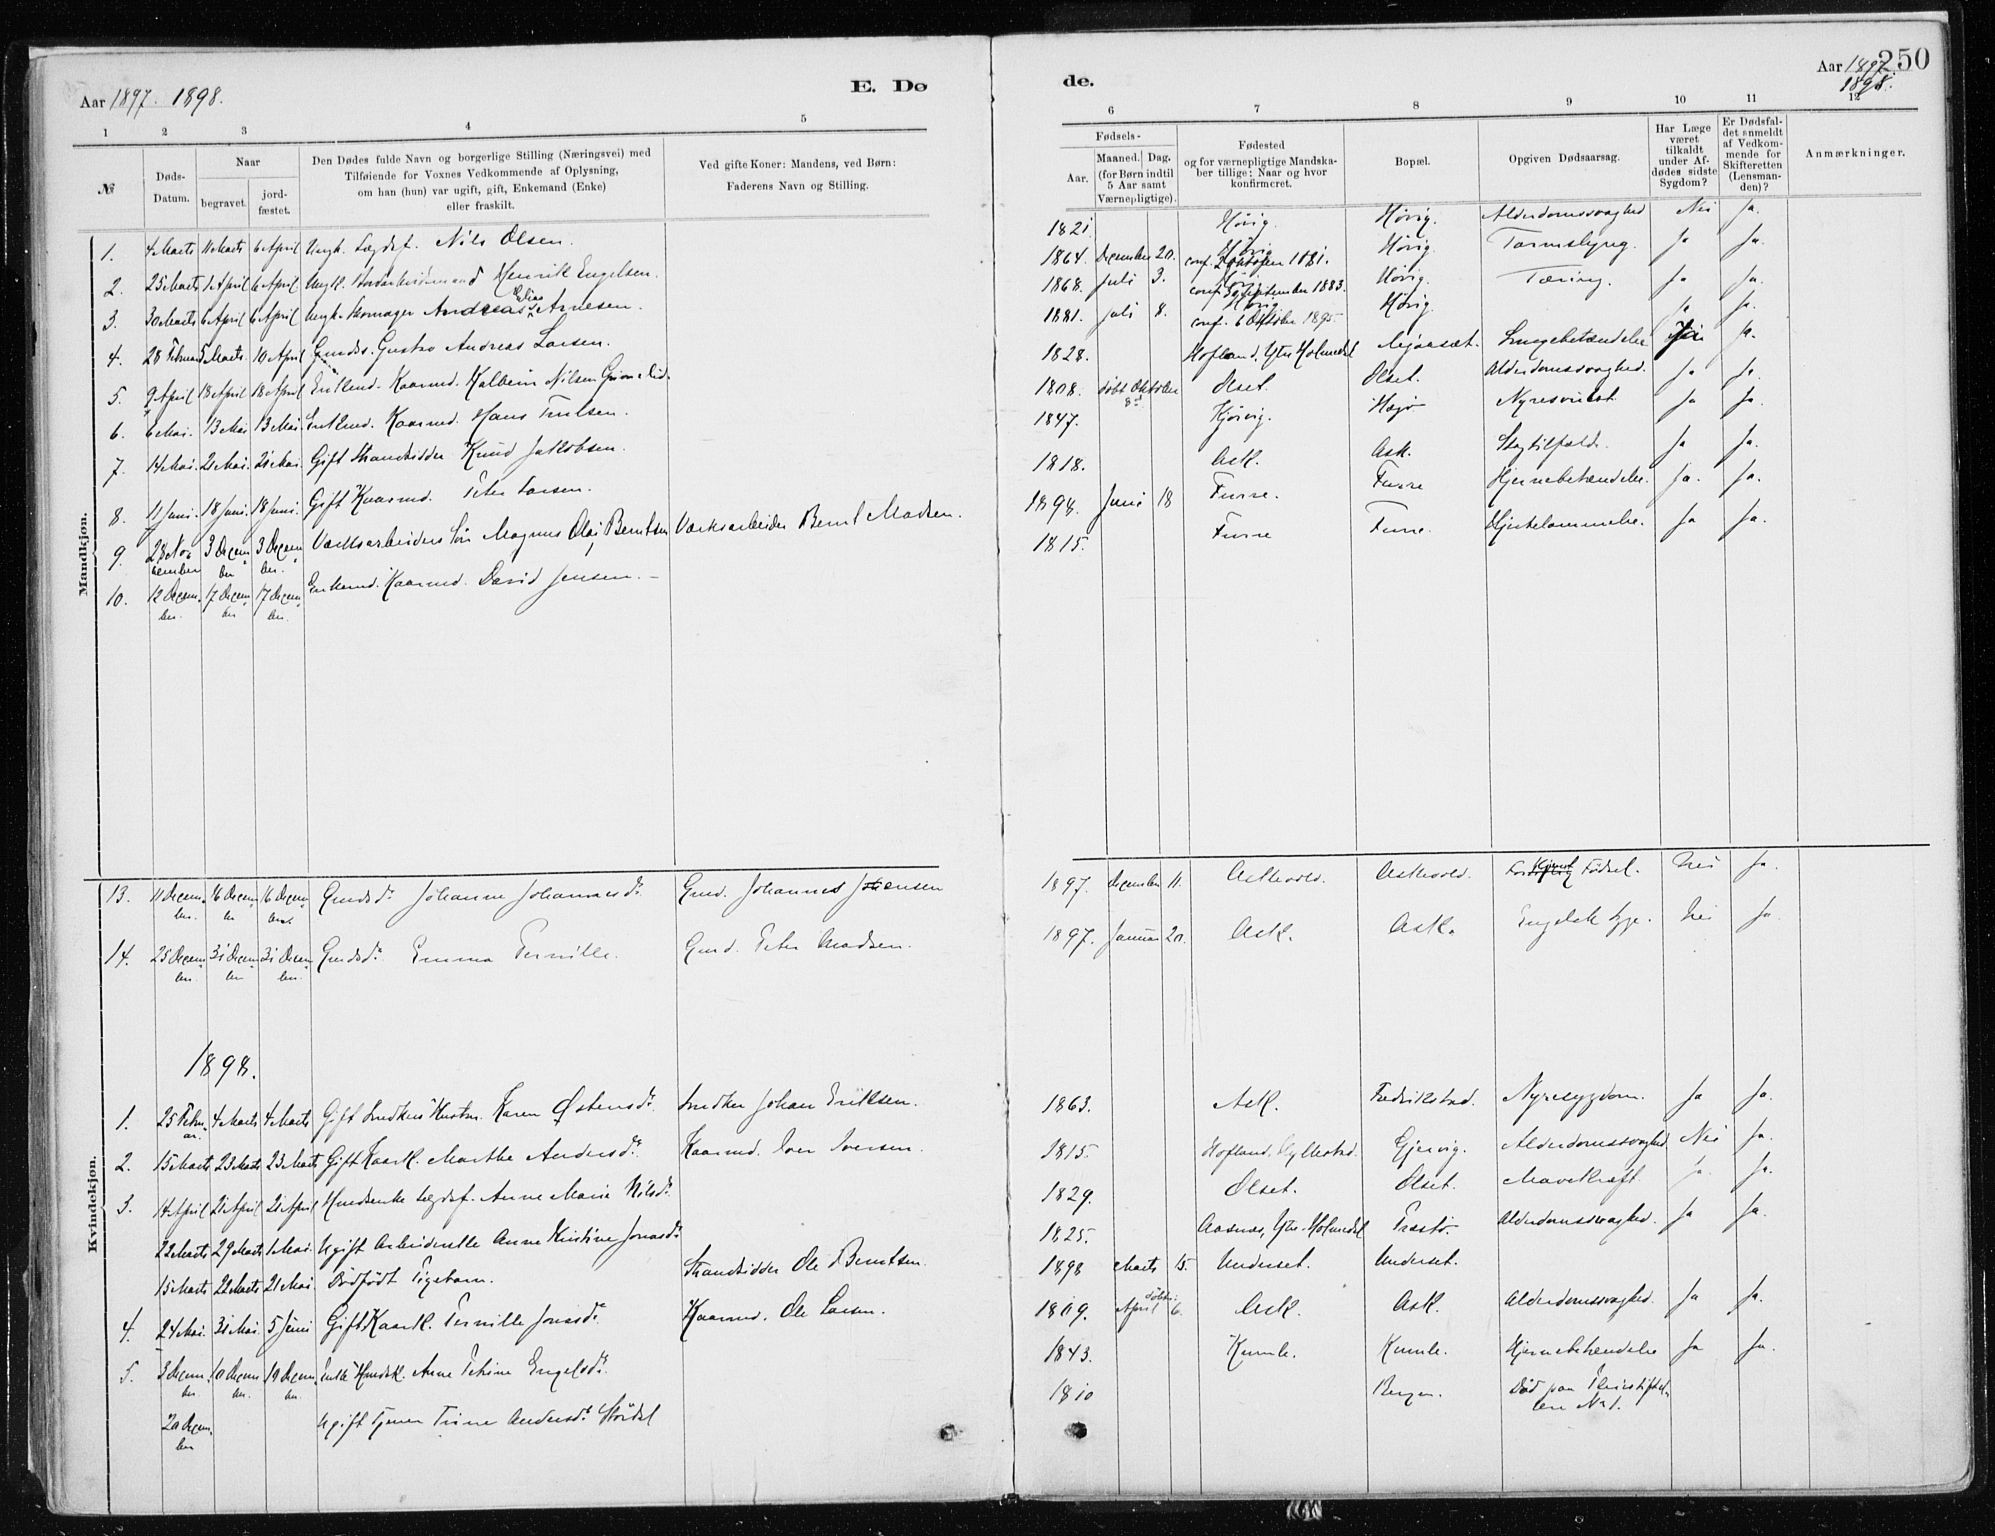 Aar 1897. 1898.
E. Dø
de.
Aar 1897
1898.
250
1 2 3 4 5
6 7 8 9 10 11 12
№
Døds-
Datum.
Naar
begravet.
jord-
fæstet.
Den Dødes fulde Navn og borgerlige Stilling (Næringsvei) med
Tilføiende for Voxnes Vedkommende af Oplysning,
om han (hun) var ugift, gift, Enkemand (Enke)
eller fraskilt.
Ved gifte Koner: Mandens, ved Børn:
Faderens Navn og Stilling.
Fødsels-
Aar.
Maaned. Dag.
(for Børn indtil
5 Aar samt
Værnepligtige).
Fødested
og for værnepligtige Mandska-
ber tillige: Naar og hvor
konfirmeret.
Bopæl.
Opgiven Dødsaarsag.
Har Læge
været
tilkaldt
under Af-
dødes sidste
Sygdom?
Er Dødsfal-
det anmeldt
af Vedkom-
mende for
Skifteretten
(Lensman-
den)?
Anmærkninger.
Mandkjøn.
1. 4 Marts 11 Marts 6 April Ungk. Lægdsl. Nils Olsen. 1821. Høvig. Høvig. Alderdomssvaghed Nei Ja.
2. 25 Marts 1 April 6 April Ungk. Henrik Engelsen. 1864. December 20. Høvig conf. 2 Oktober 1881. Høvig. Ja Ja.
3. 30 Marts 6 April 6 April Ungk. Skomager Andreas Elias Arnesen. 1868. Juli 3. conf. 30 September 1883. Høvig. Tæring. Ja Ja.
4. 28 Februar 5 Marts 10 April Gmdss. Gustav Andreas Larsen. 1881. Juli 8. Høvig conf. 6 Oktober 1895. Høvig Ja Ja.
5. 9 April 18 April 18 April Enkemd. Kaarmd. Kolbein Nilsen 1828. Hofland, Ytre Holmedal Lungebetændelse Ja.
6. 6 Mai. 13 Mai 13 Mai. Enkmd. Kaarmd. Hans Trulsen. 1808. døbt Oktober 8de Olset. Olset. Alderdomssvaghed. Ja Ja.
7. 14 Mai. 21 Mai. 21 Mai. Gift Strandsidder Knud Jakobsen. 1847. Gjørvig. Ja Ja.
8. 11 Juni. 18 Juni. 18 Juni. Gift Kaarmd. Peter Larsen. 1818. Ask. Ask. Slagtilfæld. Ja Ja.
9. 28 November 3 December 3 December. Værksarbeiders Søn Magnus Olai Berntsen Værksarbeider Bernt Madsen. 1894. Juni 18 Furre. Furre Hjernebetændelse. Ja. Ja.
10. 12 December. 17 December 17 December. Enkemd. Kaarmd. David Jensen. 1815. Furre Furre. Hjertelammelse. Ja Ja.
Kvindekjøn.
13. 11 December. 16 December 16 December Gmdsdr. Johanne Johannesdr. Gmd. Johannes Jensen 1897. December 11. Askevold. Askevold. Fødsel. Nei Ja.
14. 25 December. 31 December 31 December. Gmdsdr. Emma Pernille. Gmd. Peter Madsen. 1897. Januar 20. Ask. Ask. Engelsk Syge. Nei Ja.
1898.
1. 25 Februar. 4 Marts 4 Marts Gift Snedkers Hustru. Karen Østensdr. Snedker Johan Eriksen. 1863. Ask. Fredrikstad. Nyresygdom. Ja Ja.
2. 15 Marts 23 Marts 23 Marts Gift Kaark. Marthe Andersdr. Kaarmd. Iver Iversen. 1815. Hofland, Hyllestad. Gjervig. Alderdomssvaghed. Nei Ja.
3. 14 April 21 April 21 April Lægdsl. Anne Marie Nilsdr. 1829. Olset. Olset. Mavekræft. Ja. Ja.
22 Marts 29 Marts 1 Mai. Ugift Anne Kirstine Jonasdr. 1825. Aasnes, Ytre-Holmedal Alderdomssvaghed. Ja Ja.
15 Marts 22 Marts 21 Mai. Dødfødt Pigebarn. Strandsidder Ole Berntsen. 1898 Marts 15. Underset. Underset.
4. 24 Mai. 31 Mai. 5 Juni Gift Kaark. Pernille Jonasdr. Kaarmd. Ole Larsen. 1809. døbt: April 6. Ask. Ask. Alderdomssvaghed. Ja Ja.
5. 3 December 10 December 19 December. Enke Anne Petrine Engelsdr. 1843. Kumle. Kumle. Hjernebetændelse Ja Ja.
20 December Ugift Tjener Trine Andersdr. Stordal 1810 Bergen. Død paa Pleiestiftelsen No 1.